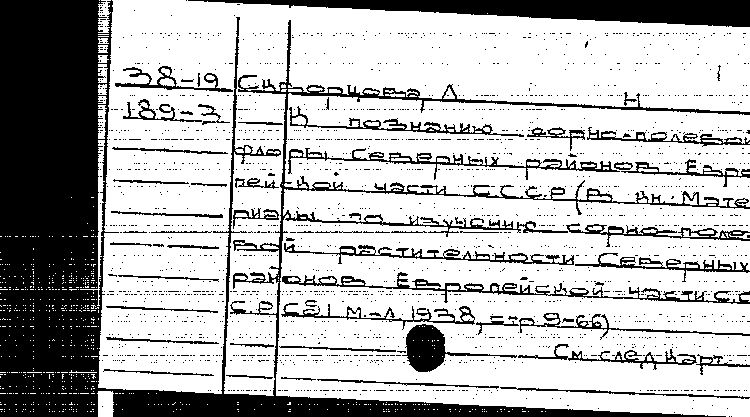 38-19 Скворцова, А Н
189-3 К познанию сорно-полевой
флоры Северных районов Евро
пейской части С.С.С.Р (В кн: Мате
риалы по изучению сорно-поле
вой растительности Северных
районов Европейской части С.С
С.Р. Сб 1 М-Л, 1938, стр. 9-66)
См след карт